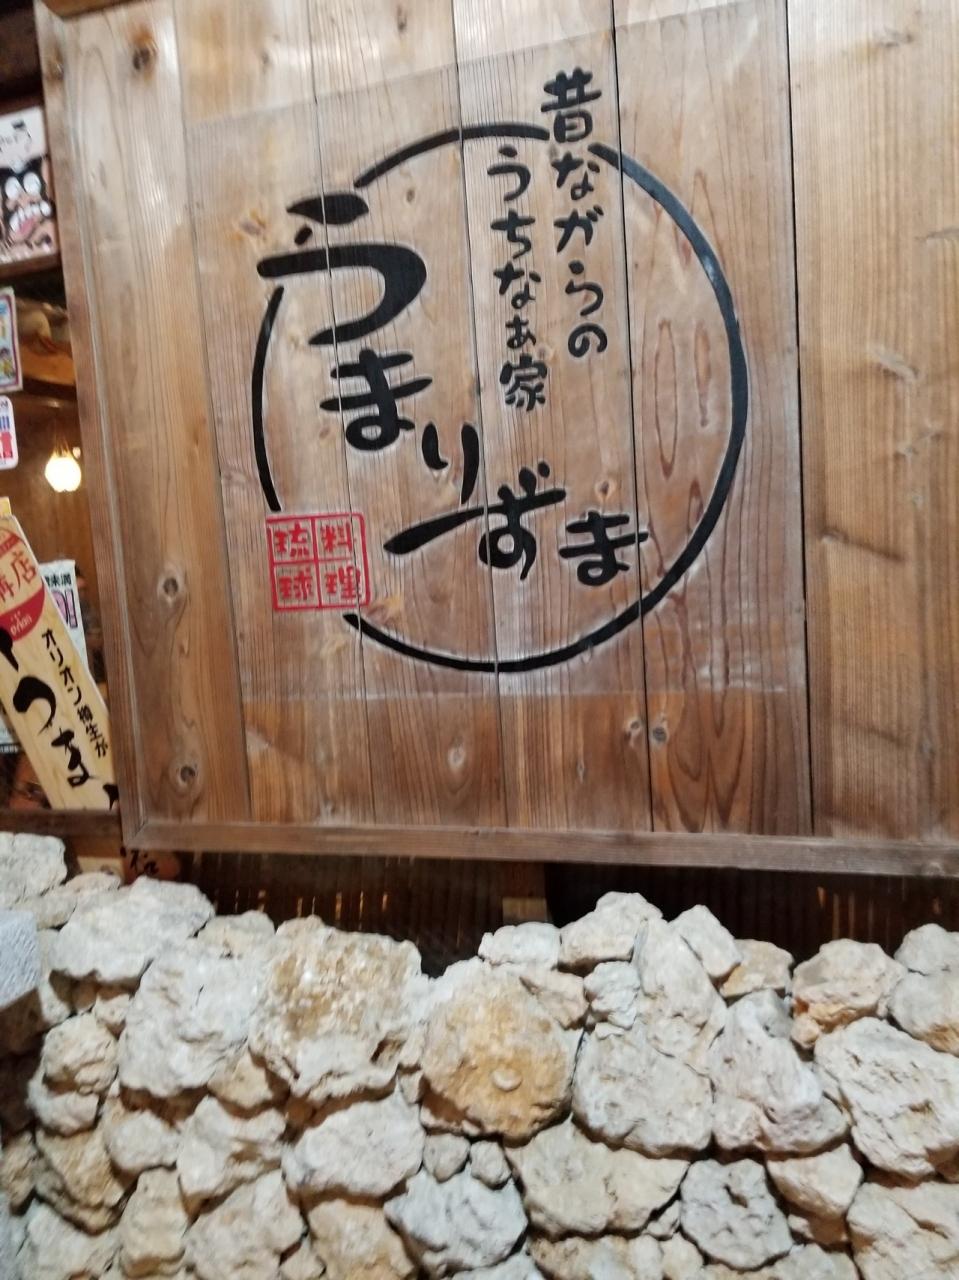 昔ながらの
うちなぁ家
うまりずま
琉球
料理
オリオン樽生が
うまい